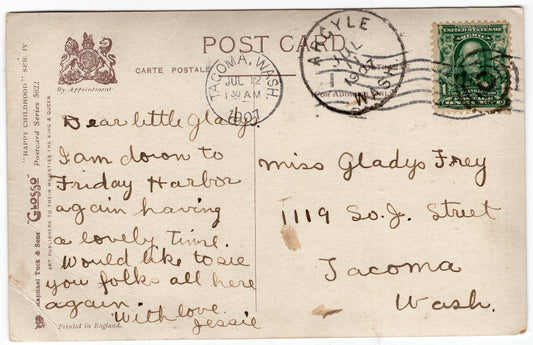 POST CARD.
CARTE POSTALE
FOR ADDRESS ONLY
By Appointment
"HAPPY CHILDHOOD" SER. IV
Postcard Series 5022
Raphael Tuck & Sons' "Glosso"
ART PUBLISHERS TO THEIR MAJESTIES THE KING & QUEEN.
Printed in England.
TACOMA, WASH.
JUL 12
1 30 AM
1907
ARGYLE
JUL
1907
WASH.
UNITED STATES OF AMERICA
Dear little Gladys.
I am down to
Friday Harbor
again having
a lovely time.
Would like to see
you folks all here
again.
With love.
Jessie
Miss Gladys Frey
1119 So. J. Street
Tacoma
Wash.